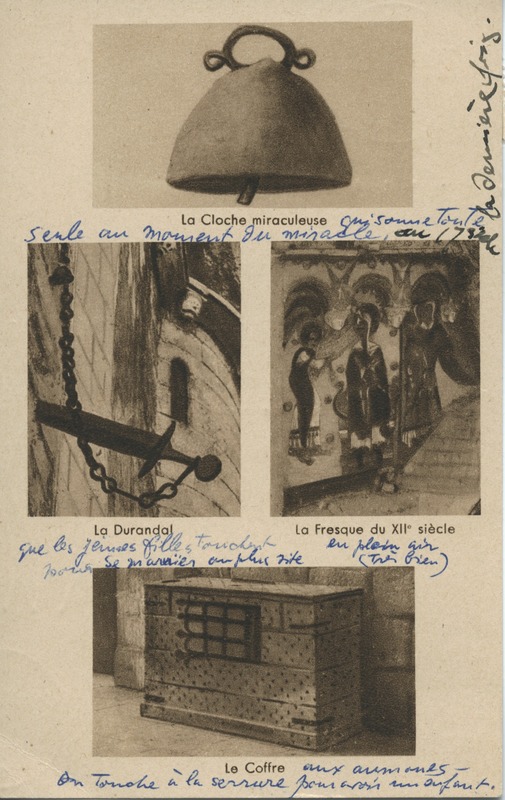 La Cloche miraculeuse qui sonne toute
seule au moment du miracle, en 1793
la dernière fois.
La Durandal
que les jeunes filles touchent
pour se marier au plus vite
La Fresque du XIIe siècle
en plein air
(très bien)
Le Coffre aux aumones -
On touche à la serrure pour avoir un enfant.